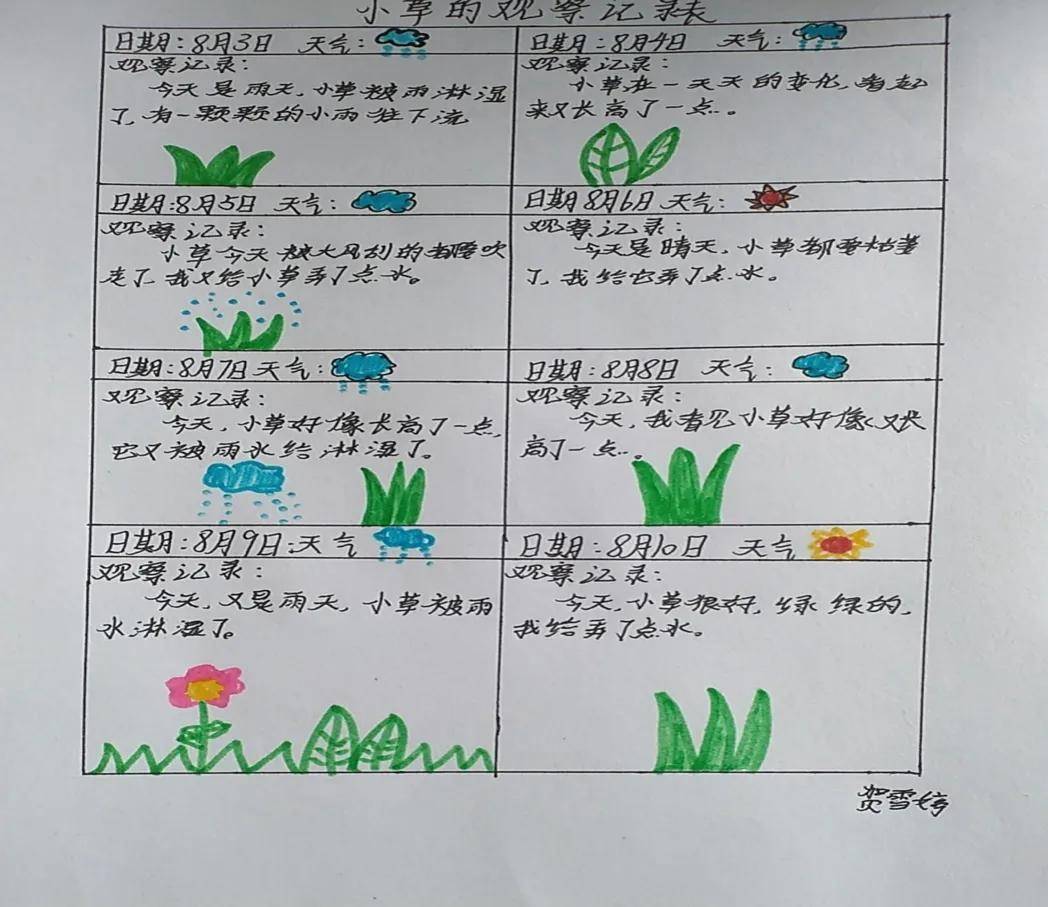 小草的观察记录表
日期:8月3日 天气:
观察记录:
今天是雨天,小草被雨淋湿
了,有一颗颗的小雨往下流
日期:8月4日 天气:
观察记录:
小草在一天天的变化,看起
来又长高了一点。
日期:8月5日 天气:
观察记录:
小草今天被大风刮的都要吹
走了,我又给小草弄了点水。
日期8月6日 天气:
观察记录:
今天是晴天,小草都要枯萎
了,我给它弄了点水。
日期:8月7日天气:
观察记录:
今天,小草好像长高了一点,
它又被雨水给淋湿了。
日期:8月8日 天气:
观察记录:
今天,我看见小草好像又长
高了一点。
日期:8月9日:天气
观察记录:
今天,又是雨天,小草被雨
水淋湿了。
日期:8月10日 天气
观察记录:
今天,小草很好,绿绿的,
我给弄了点水。
贺雪婷